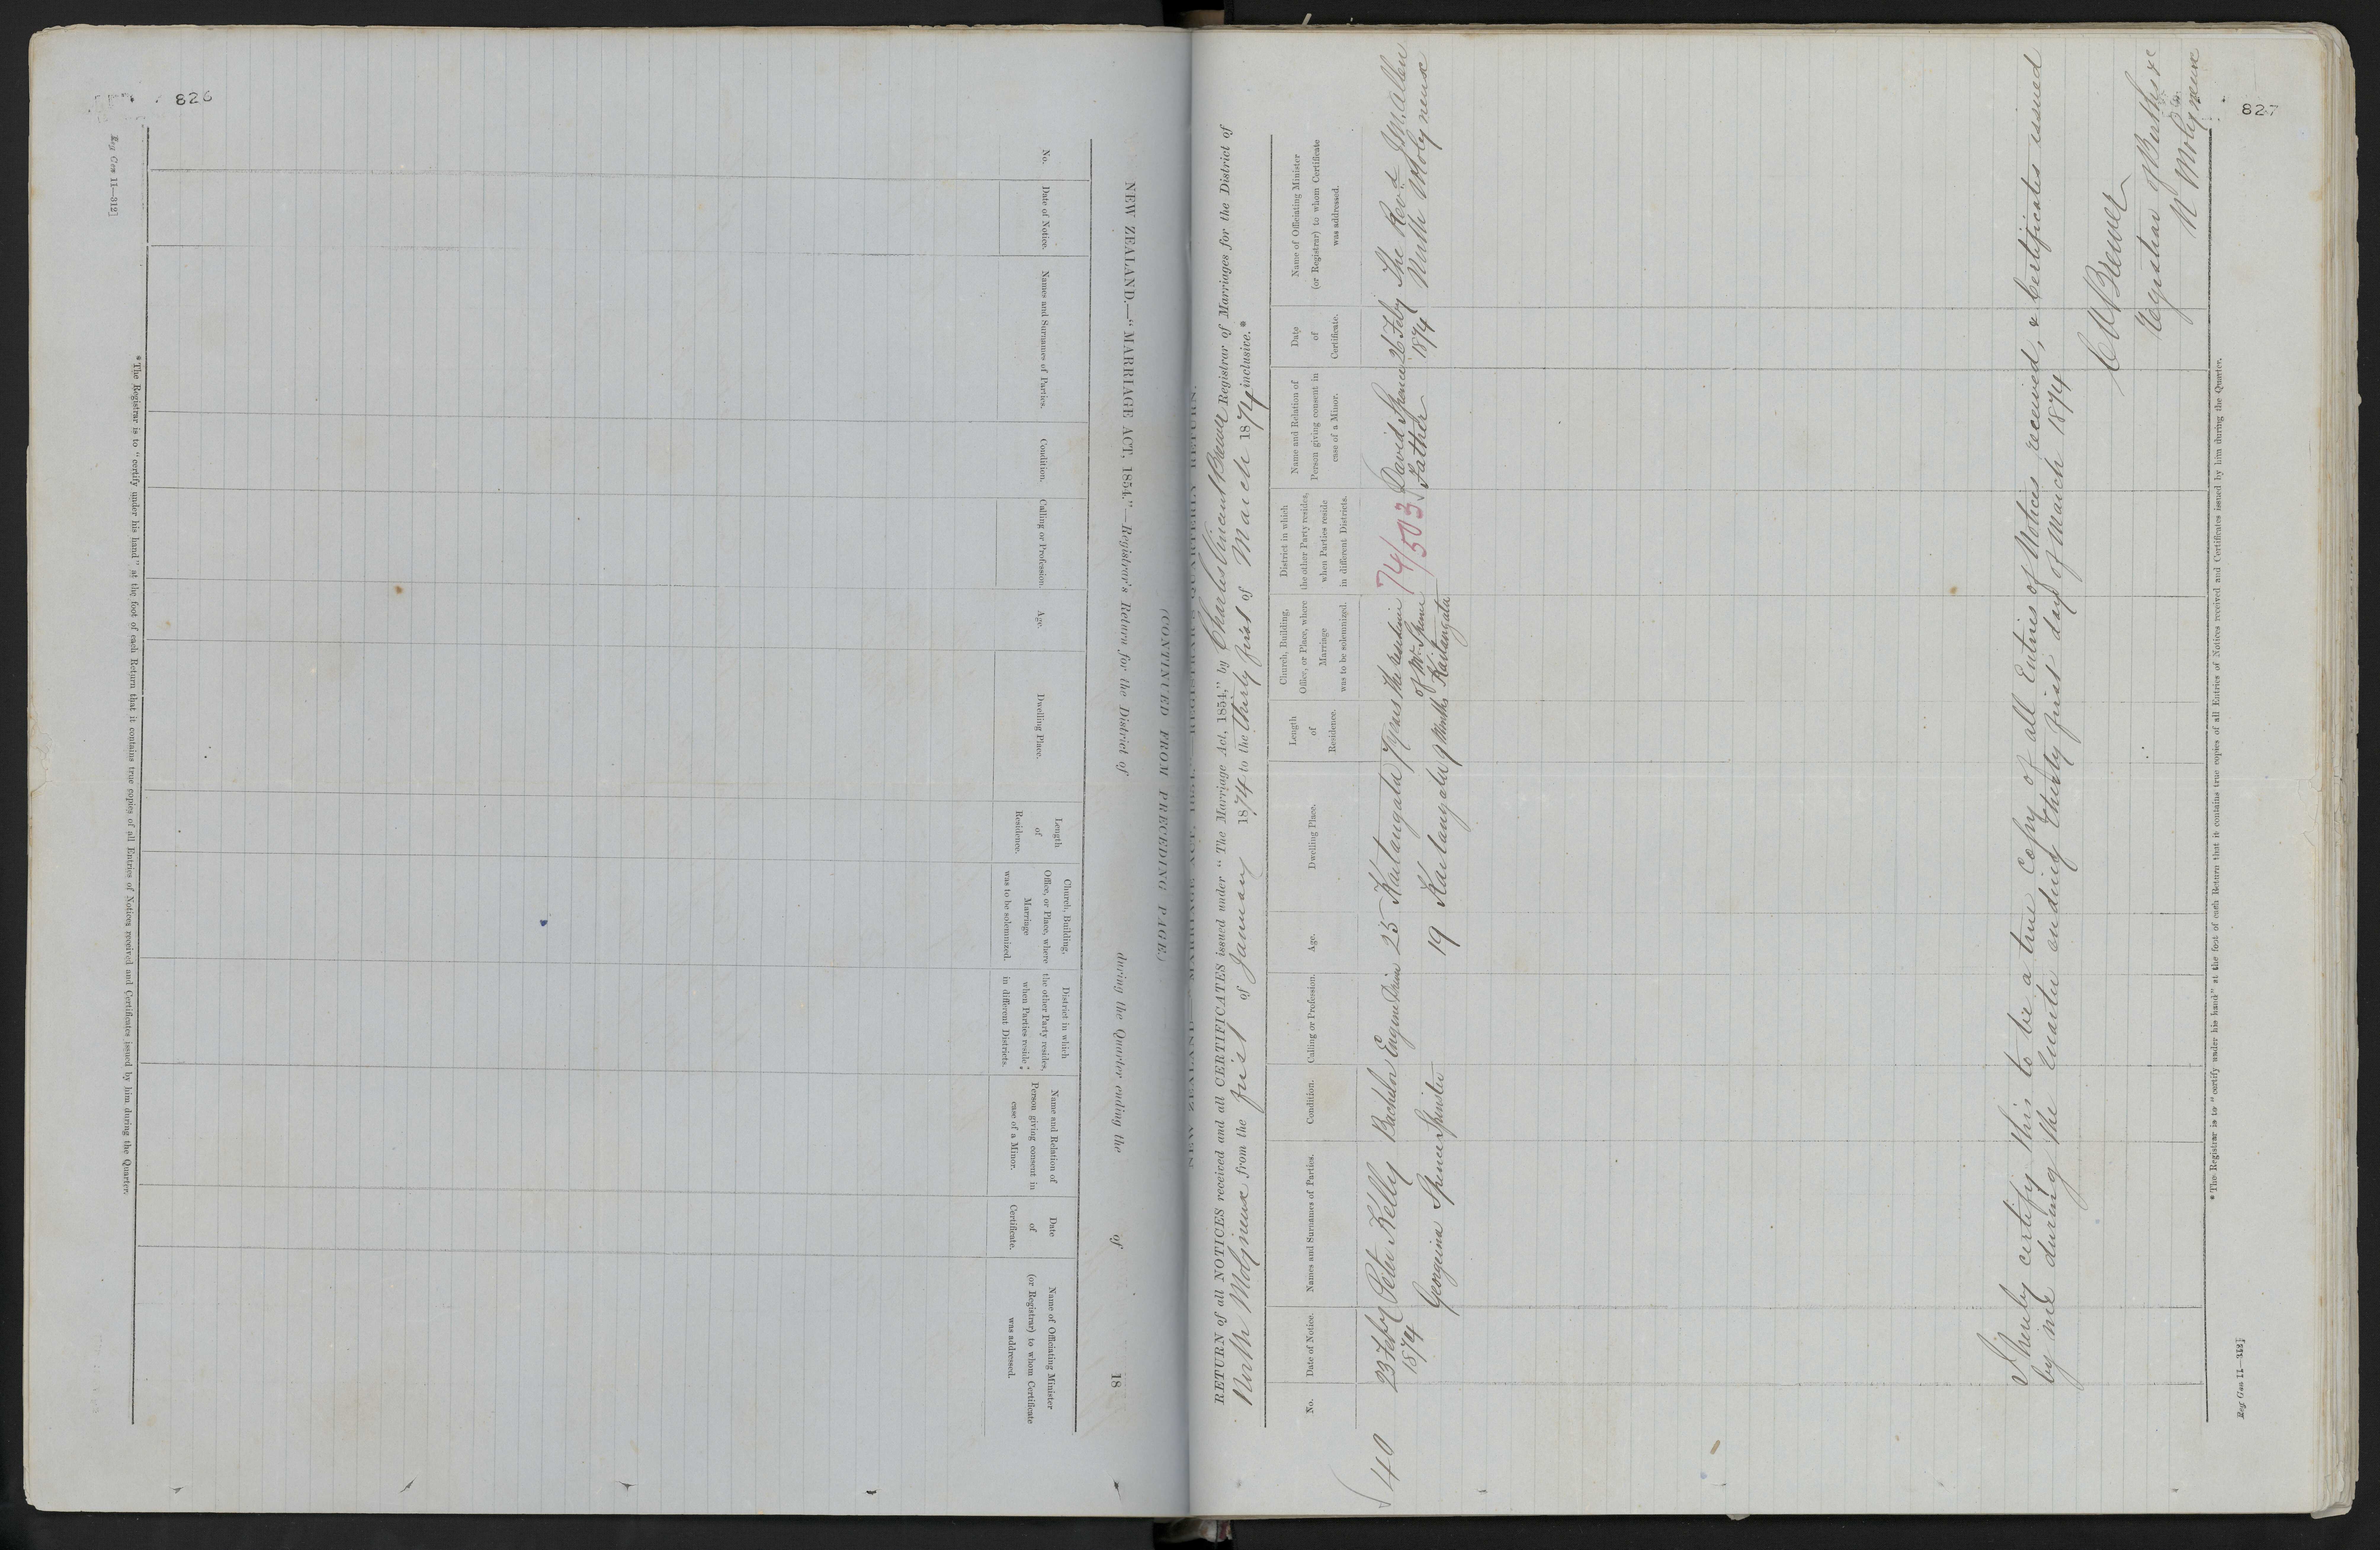 826
Reg Gen 11—312]
NEW ZEALAND.—"MARRIAGE ACT, 1854."—Registrar's Return for the District of during the Quarter ending the of 18
(CONTINUED FROM PRECEDING PAGE.)
No.
Date of Notice.
Names and Surnames of Parties.
Condition.
Calling or Profession.
Age.
Dwelling Place.
Length
of
Residence.
Church, Building,
Office, or Place, where
Marriage
was to be solemnized.
District in which
the other Party resides,
when Parties reside
in different Districts.
Name and Relation of
Person giving consent in
case of a Minor.
Date
of
Certificate.
Name of Officiating Minister
(or Registrar) to whom Certificate
was addressed.
*The Registrar is to "certify under his hand" at the foot of each Return that it contains true copies of all Entries of Notices received and Certificates issued by him during the Quarter.
827
NEW ZEALAND.—"MARRIAGE ACT, 1854."—REGISTRAR'S QUARTERLY RETURN.
RETURN of all NOTICES received and all CERTIFICATES issued under "The Marriage Act, 1854," by Charles Vincent Brewer Registrar of Marriages for the District of
North Molyneux from the first of January 1874 to the thirty first of March 1874 inclusive.*
No.
Date of Notice.
Names and Surnames of Parties.
Condition.
Calling or Profession.
Age.
Dwelling Place.
Length
of
Residence.
Church, Building,
Office, or Place, where
Marriage
was to be solemnized.
District in which
the other Party resides,
when Parties reside
in different Districts.
Name and Relation of
Person giving consent in
case of a Minor.
Date
of
Certificate.
Name of Officiating Minister
(or Registrar) to whom Certificate
was addressed.
40
23 Feby
1874
Peter Kelly
Georgina Spence
Bachelor
Spinster
Engine Driver
25
19
Kaitangata
Kaitangata
7 years
9 Months
The residence
of Mr Spence
Kaitangata
74/503
David Spence
Father
26 Feby
1874
The Revd Jn Allen
North Molyneux
I hereby certify this to be a true copy of all Entries of Notices received, & Certificates issued
by me during the Quarter ending thirty first day of March 1874
C V Brewer
Registrar of Births &c
N Molyneux
*The Registrar is to "certify under his hand" at the foot of each Return that it contains true copies of all Entries of Notices received and Certificates issued by him during the Quarter.
Reg Gen 11—312]